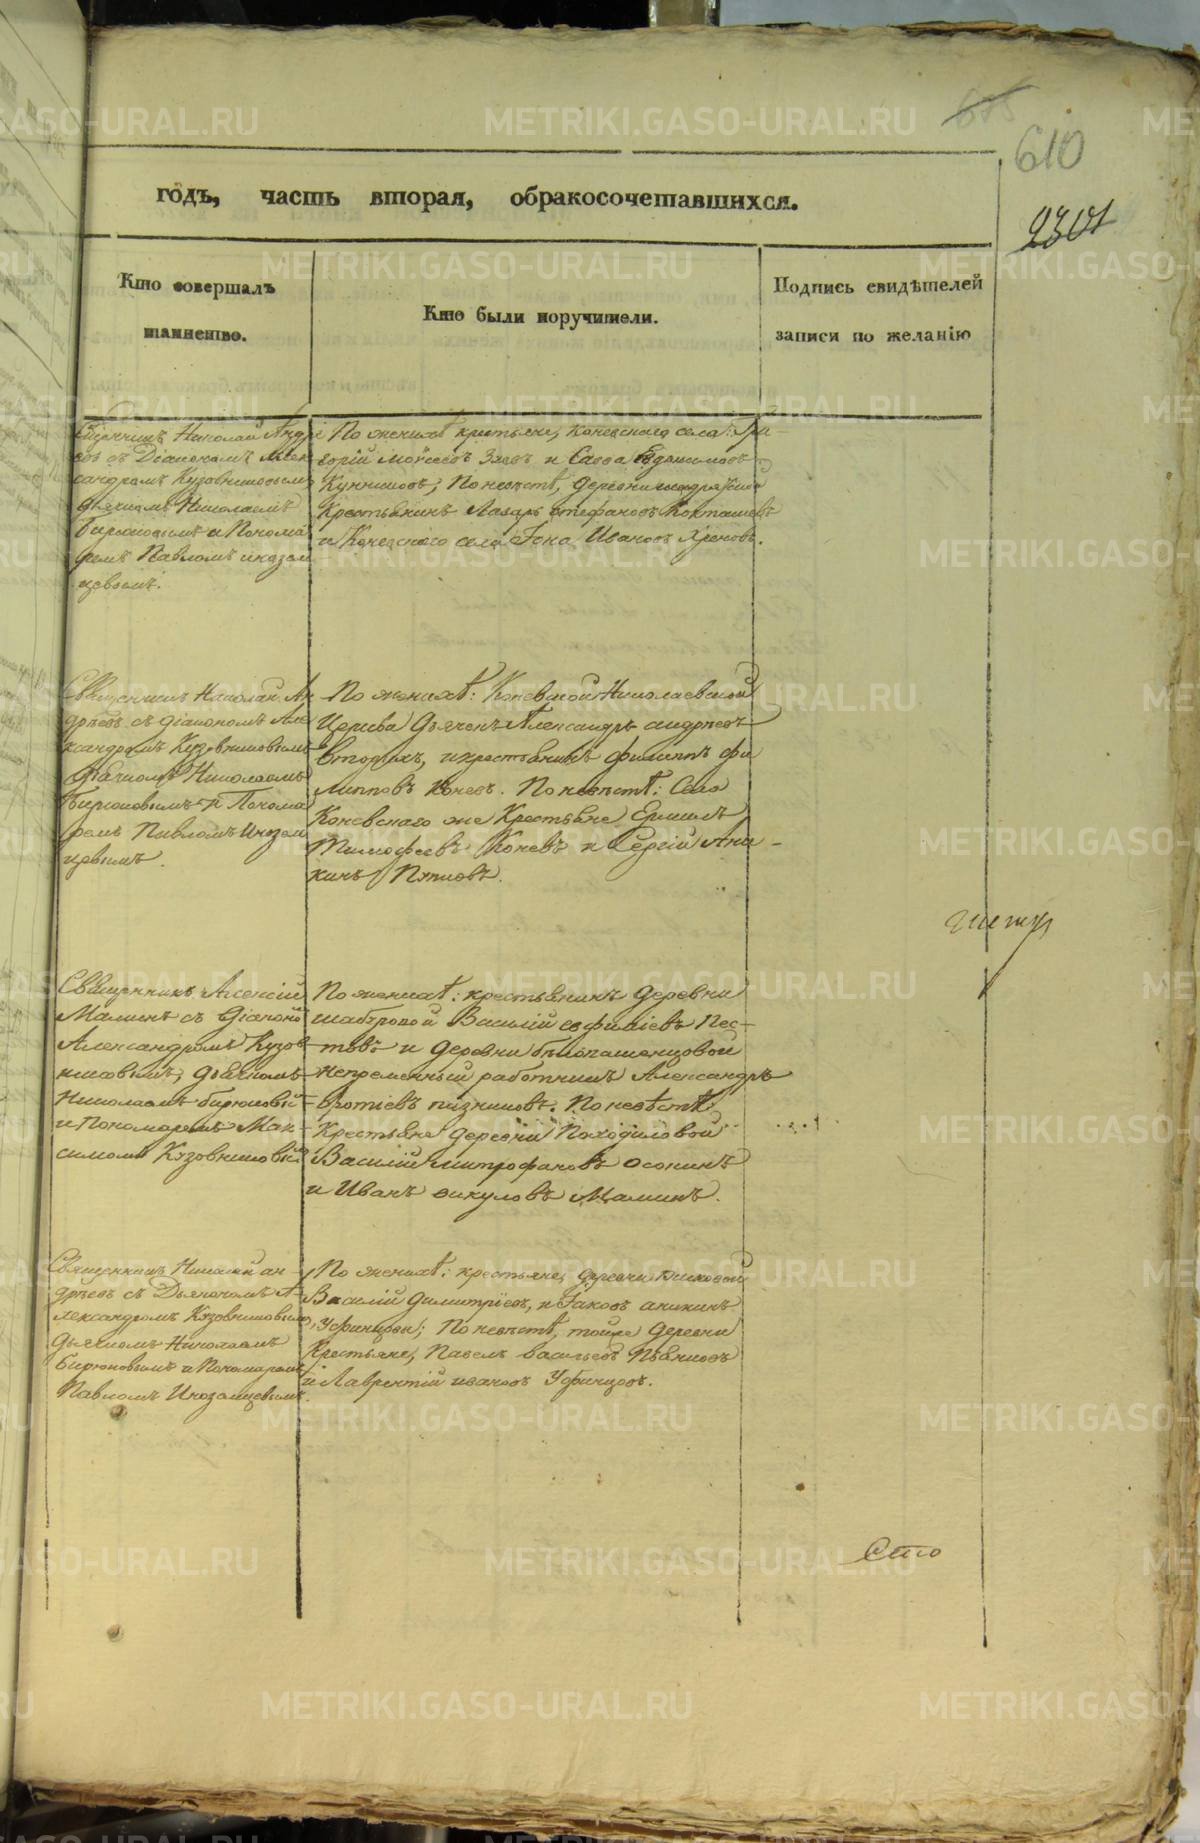 610
2301
годъ, часть вторая, обракосочетавшихся.
Кто совершалъ
таинство.
Кто были поручители.
Подпись свидѣтелей
записи по желанію
Священникъ Николай Андре
евъ съ Діакономъ Алек
сандромъ Кузовниковымъ
дьячкомъ Николаемъ
Бирюковымъ и Понома
ремъ Павломъ инозем
цовымъ.
По женихѣ крестьяне, Коневскаго села: Гри
горій Мойсеевъ и Савва
По невѣстѣ, деревни
Крестьянинъ Лазарь стефановъ
и Коневскаго села Іона Ивановъ
Священникъ Николай Ан
дреевъ съ діакономъ Але
ксандромъ Кузовниковымъ
Дьячкомъ Николаемъ
Бирюковымъ и Понома
ремъ Павломъ Инозем
цовымъ.
По женихѣ: Коневской Николаевской
Церкви Дьячекъ Александръ андреевъ
и крестьянинъ филиппъ фи
липповъ Коневъ. По невѣстѣ: Села
Коневскаго же Крестьяне Ермилъ
Тимофеевъ Коневъ и Сергій Ани
кинъ
Священникъ Алексій
Малинъ съ Діакономъ
Александромъ Кузов
никовымъ, дьячкомъ
Николаемъ бирюковы
и Пономаремъ Мак-
симомъ Кузовниковы
По женихѣ: крестьянинъ деревни
шабуровой Василій евфиміевъ Пес-
и деревни
непременный работникъ Александръ
По невѣстѣ
Крестьяне деревни Походиловой
Василій митрофановъ осокинъ
и Иванъ викуловъ Маминъ.
Священникъ Николай ан
дреевъ съ Дьякономъ А-
лександромъ Кузовниковымъ,
дьячкомъ Николаемъ
бирюковымъ и Пономаремъ
Павломъ Иноземцевымъ.
По женихѣ: крестьяне, деревни
Василій димитріевъ, и Іаковъ аникинъ
Уфинцовы; По невѣстѣ, тойже деревни
Крестьяне, Павелъ васильевъ Пьянковъ
и Лаврентій ивановъ Уфинцовъ.
Сто
METRIKI.GASO-URAL.RU